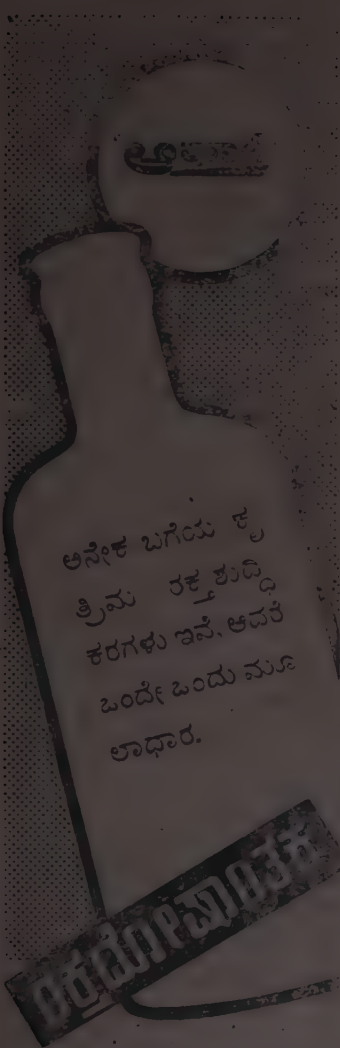 ಅನೇಕ ಬಗೆಯ ಕೃ
ತ್ರಿಮ ರಕ್ತಶುದ್ಧಿ
ಕರಗಳು ಇವೆ. ಆದರೆ
ಒಂದೇ ಒಂದು ಮೂ
ಲಾಧಾರ.
ರಕ್ತದೋಷಾಂತಕ